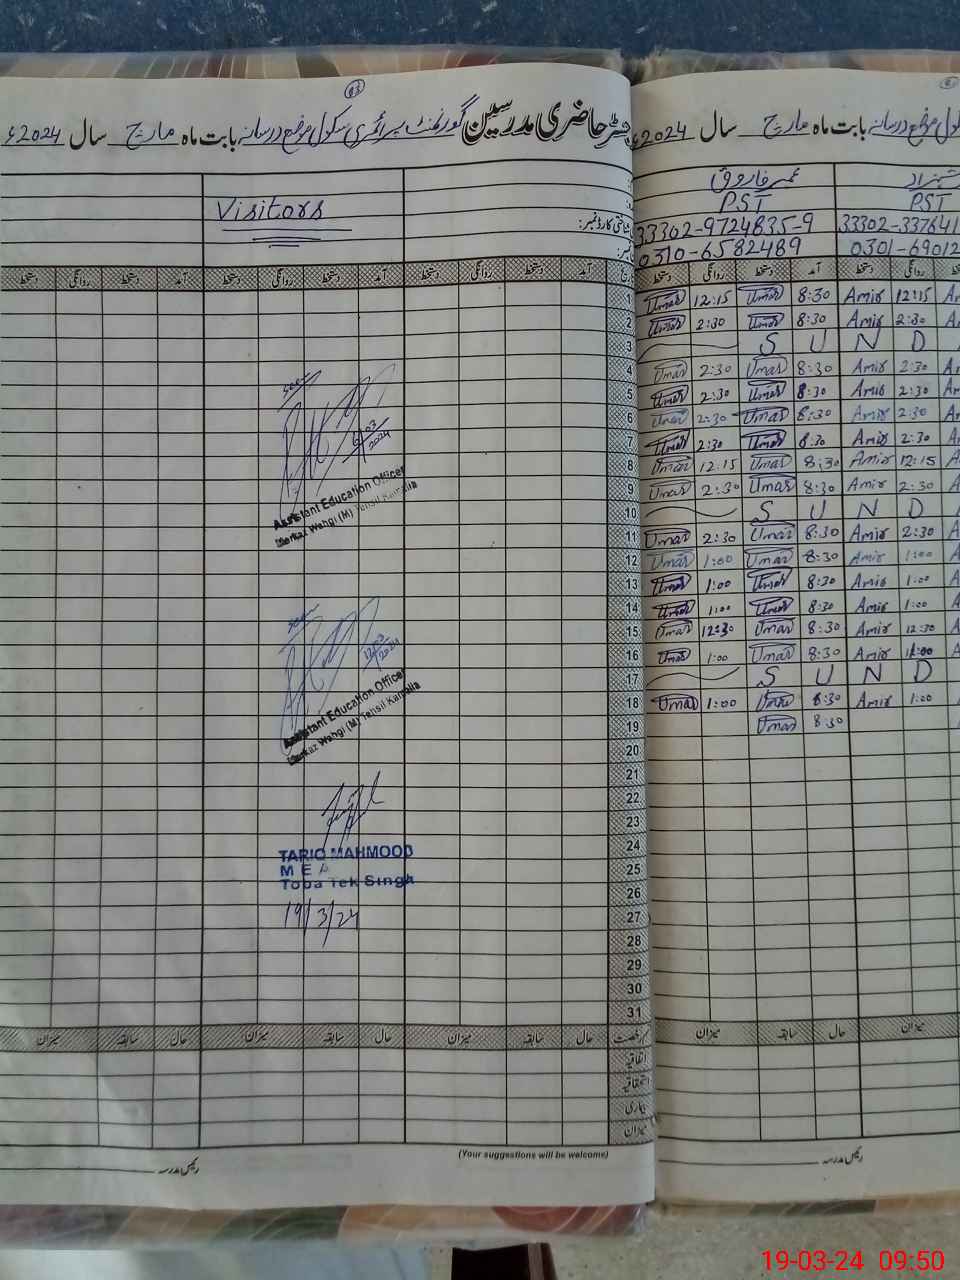 رجسٹر حاضری مدرسین گورنمنٹ پرائمری سکول موضع درسانہ بابت ماہ مارچ سال 2024ء
Visitors
شناختی کارڈ نمبر:
آمد دستخط روانگی دستخط آمد دستخط روانگی دستخط آمد دستخط روانگی دستخط
1
2
3
4
5
6
7
8
9
10
11
12
13
14
15
16
17
18
19
20
21
22
23
24
25
26
27
28
29
30
31
Seen
6/03/2024
Assistant Education Officer
Markaz Wahgi (M) Tehsil Kamalia
Seen
12/03/2024
Assistant Education Officer
Markaz Wahgi (M) Tehsil Kamalia
TARIQ MAHMOOD
M E A
Toba Tek Singh
19/3/24
حال سابقہ میزان حال سابقہ میزان حال سابقہ میزان
اتفاقیہ
استحقاقیہ
بیماری
میزان
(Your suggestions will be welcome)
رئیس مدرسہ
موضع درسانہ بابت ماہ مارچ سال 2024ء
شہزاد عمر فاروق
PST PST
33302-9724835-9 33302-337641
0310-6582489 0301-69012
دستخط روانگی دستخط آمد دستخط روانگی
Umar 12:15 Umar 8:30 Amir 12:15
Umar 2:30 Umar 8:30 Amir 2:30
S U N D
Umar 2:30 Umar 8:30 Amir 2:30
Umar 2:30 Umar 8:30 Amir 2:30
Umar 2:30 Umar 8:30 Amir 2:30
Umar 2:30 Umar 8:30 Amir 2:30
Umar 12:15 Umar 8:30 Amir 12:15
Umar 2:30 Umar 8:30 Amir 2:30
S U N D
Umar 2:30 Umar 8:30 Amir 2:30
Umar 1:00 Umar 8:30 Amir 1:00
Umar 1:00 Umar 8:30 Amir 1:00
Umar 1:00 Umar 8:30 Amir 1:00
Umar 12:30 Umar 8:30 Amir 12:30
Umar 1:00 Umar 8:30 Amir 1:00
S U N D
Umar 1:00 Umar 8:30 Amir 1:00
Umar 8:30
میزان سابقہ حال میزان
رئیس مدرسہ
19-03-24 09:50